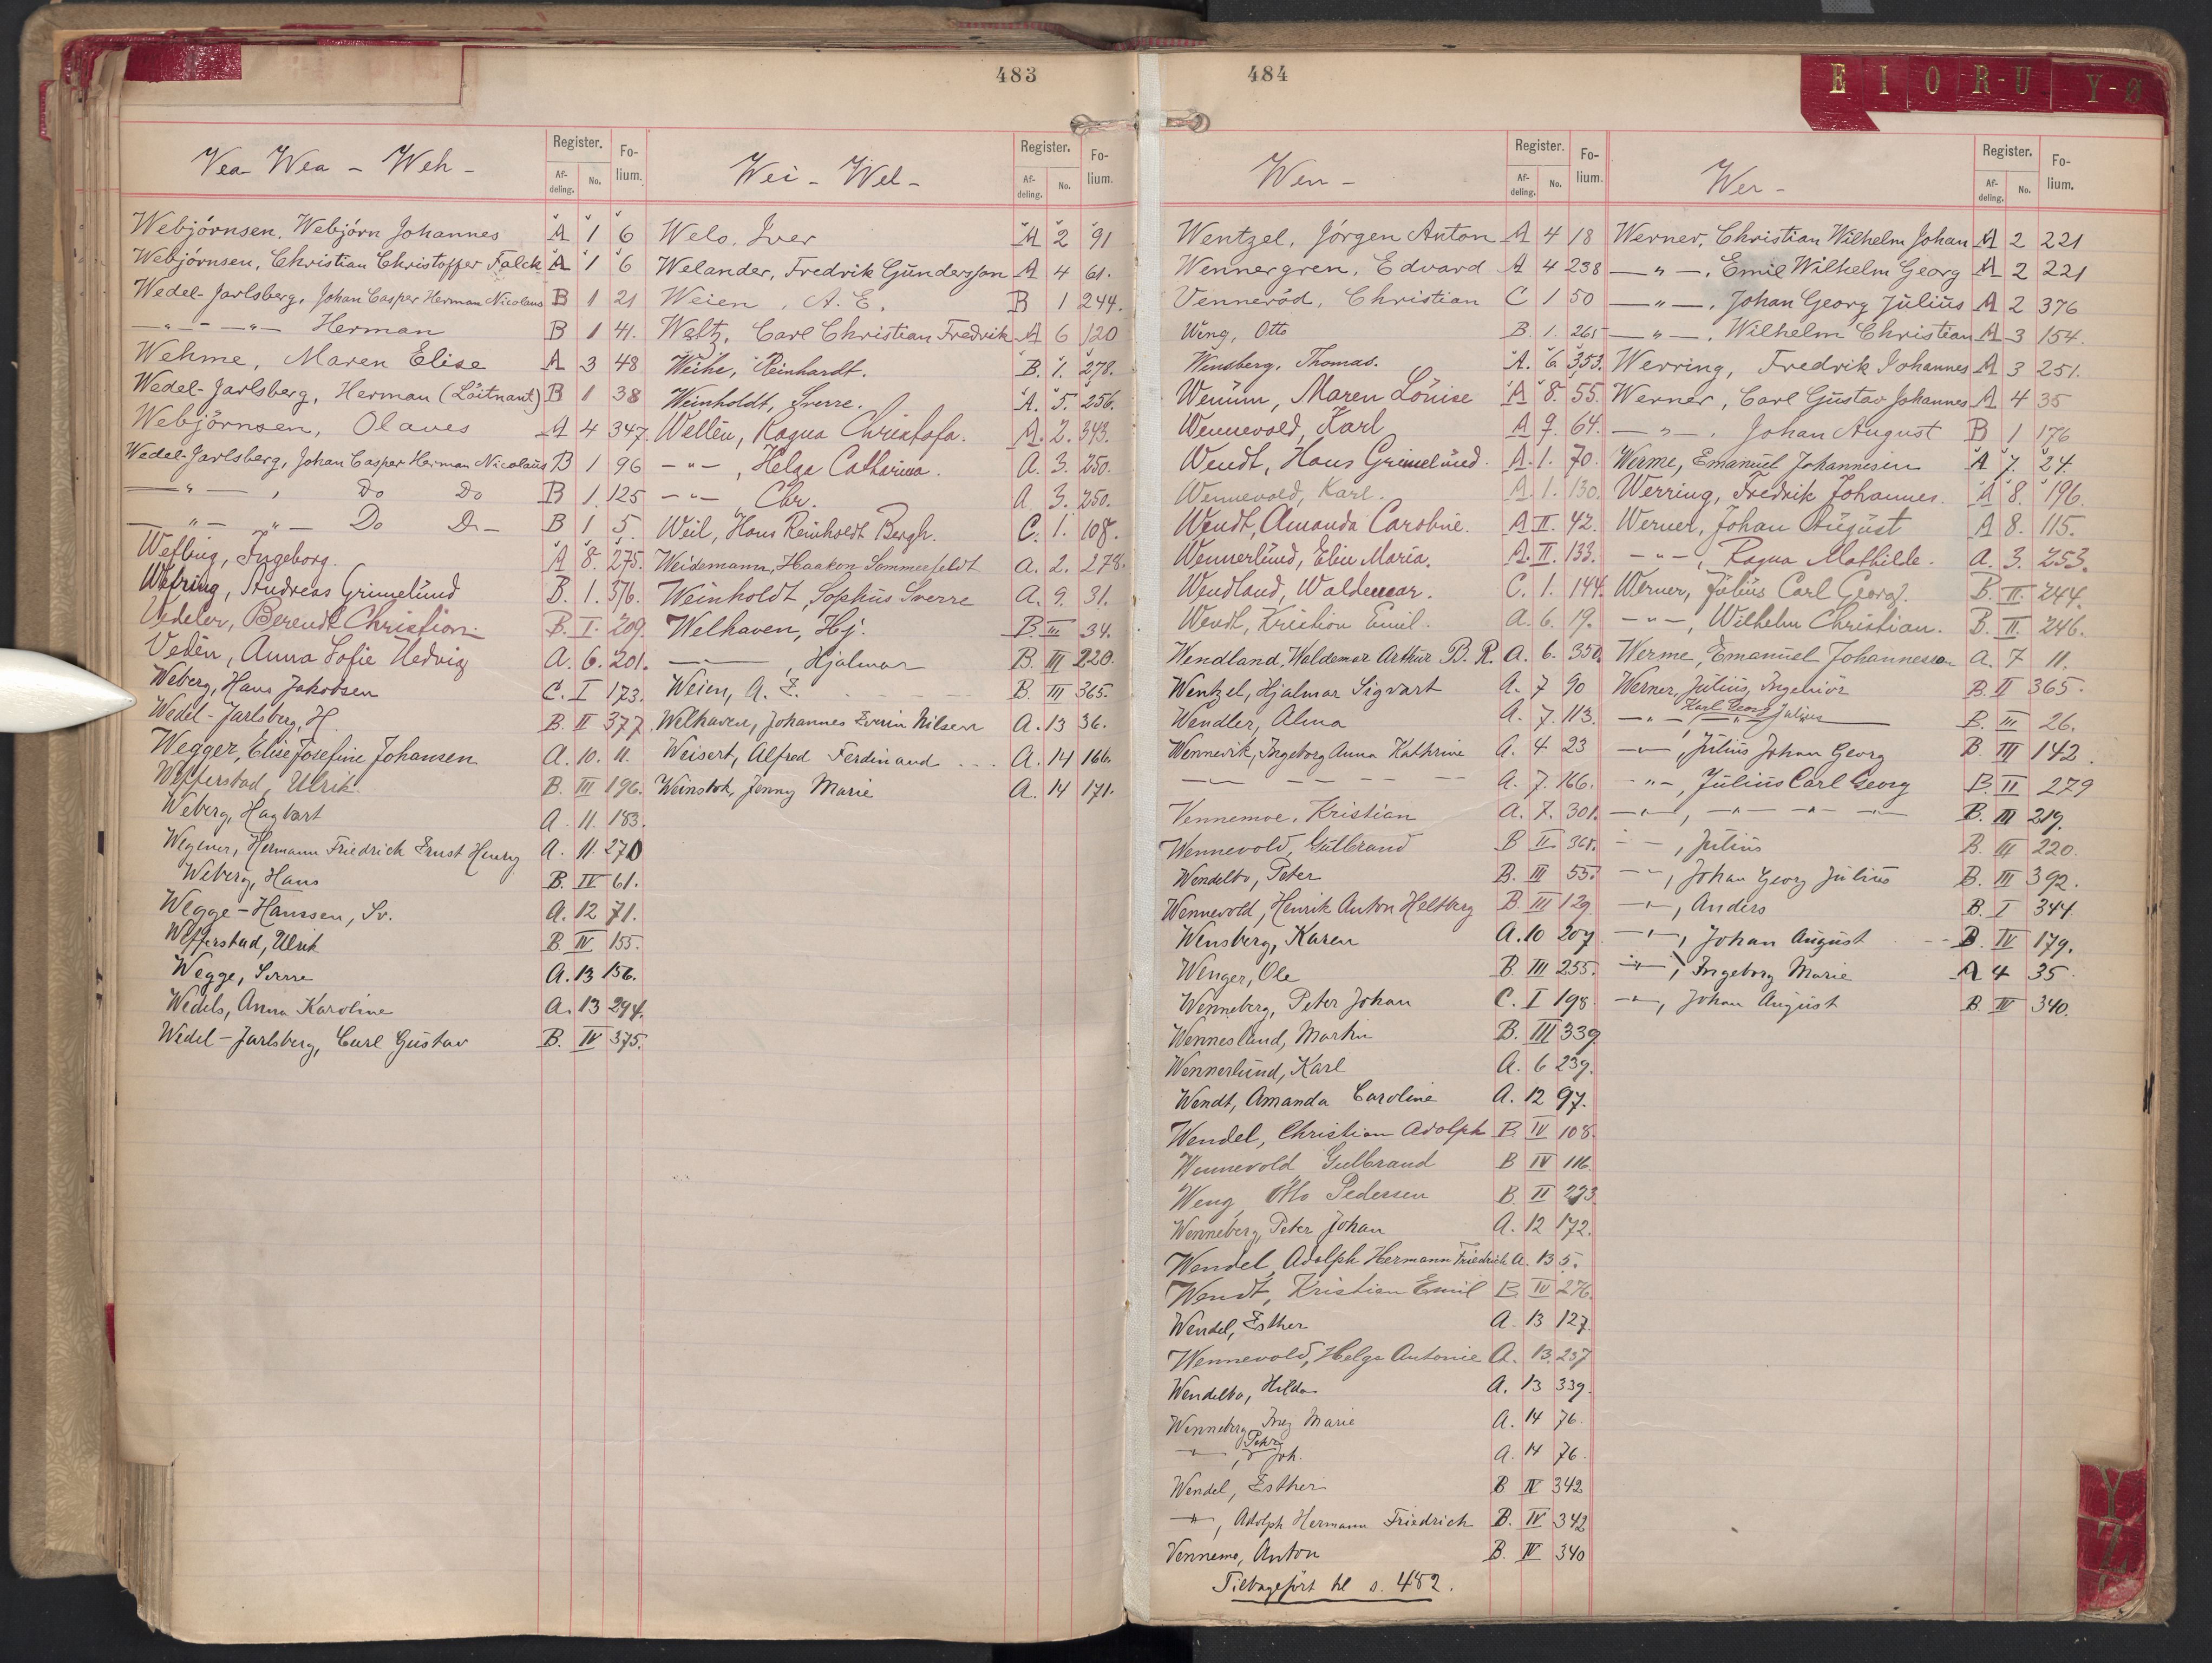 483
Vea- Wea - Weh -
Register.
Af-deling.
No.
Fo-lium.
Webjörnsen, Webjörn Johannes A 1 6
Webjörnsen, Christian Christoffer Falck A 1 6
Wedel-Jarlsberg, Johan Casper Herman Nicolaus B 1 21
—„— —„— Herman B 1 41.
Wehme, Maren Elise A 3 48
Wedel-Jarlsberg, Herman (Löitnant) B 1 38
Webjörnsen, Olaves A 4 347
Wedel-Jarlsberg, Johan Casper Herman Nicolaus B 1 96
—„— , Do Do B 1. 125
—„— —„— Do Do- B 1 5.
Wefling, Ingeborg. A 8. 275.
Wefring, Andreas Grimelund B. 1. 376.
Vedeler, Berendt Christian B. I. 209.
Vedén, Anna Sofie Hedvig A. 6. 201.
Weberg, Hans Jakobsen C. I 173.
Wedel-Jarlsberg, H. B. II 377.
Wegger, Elise Josefine Johansen A. 10. 11.
Wefferstad, Ulrik. B. III 196.
Weberg, Hagbart A. 11. 183.
Wegener, Hermann Friedrich Ernst Henry A. 11. 270
Weberg, Hans B. IV 61.
Wegge-Hanssen, Sv. A. 12 71.
Wefferstad, Ulrik B. IV 155.
Wegge, Sverre A. 13 156.
Wedels, Anna Karoline A. 13 294.
Wedel-Jarlsberg, Carl Gustav B. IV 375.
Wei - Wel -
Register.
Af-deling.
No.
Fo-lium.
Welo, Iver A 2 91
Welander, Fredrik Gundersen A 4 61.
Weien, A. E. B 1 244.
Weltz, Carl Christian Fredrik A 6 120
Weihe, Reinhardt. B. 1. 278.
Weinholdt, Sverre. A. 5. 256.
Wellén, Ragna Christofa. A. 2. 343.
-„-, Helga Catharina. A. 3. 250.
-„- Chr. A 3. 250.
Weil, Hans Reinholdt Bergh. C. 1. 108.
Weidemann, Haakon Sommerfeldt A. 2. 278.
Weinholdt, Sophus Sverre A. 9. 31.
Welhaven, Hj. B. III 34.
—„—, Hjalmar B. III 220.
Weien, A. E. B. III 365.
Welhaven, Johannes Nilsen A. 13 36.
Weisert, Alfred Ferdinand A. 14 166.
Weinstok, Jenny Marie A. 14 171.
484
E I O R-U Y-Ø
Wen -
Register.
Af-deling.
No.
Fo-lium.
Wentzel, Jörgen Anton A 4 18
Wennergren, Edvard A 4 238
Venneröd, Christian C 1 50
Weng, Otto B. 1. 265
Wensberg, Thomas. A. 6. 353.
Wenum, Maren Lovise A 8. 55.
Wennevold, Karl A 7. 64.
Wendt, Hans Grimelund. A. 1. 70.
Wennevold, Karl. A. 1. 130.
Wendt, Amanda Caroline. A. II. 42.
Wennerlund, Elin Maria. A. II. 133.
Wendland, Waldemar. C. 1. 144.
Wendt, Kristian Emil. A. 6. 19.
Wendland, Waldemar Arthur B. R. A. 6. 350.
Wentzel, Hjalmar Sigvart A. 7 90
Wendler, Alma A. 7. 113.
Wennevik, Ingeborg Anna Kathrine A. 4 23
—„— — — — A. 7. 166.
Vennemoe, Kristian A. 7. 301.
Wennevold, Gulbrand B II. 368.
Wendelbo, Peter B. III 55.
Wennevold, Henrik Anton Heltberg B III 129.
Wensberg, Karen A. 10 207
Wenger, Ole B. III 255.
Wenneberg, Peter Johan C. I 198.
Wennesland, Martin B. III 339
Wennerlund, Karl A. 6 239.
Wendt, Amanda Caroline A. 12 97.
Wendel, Christian Adolph B. IV 108.
Wennevold Gulbrand B IV 116.
Weng, Otto Pedersen B II 223.
Wenneberg, Peter Johan A. 12 172.
Wendel, Adolph Hermann Friedrich A. 13 5.
Wendt, Kristian Emil B. IV 276.
Wendel, Esther A. 13 127.
Wennevold, Helga Antonie A. 13. 237
Wendelbo, Hilda A. 13 339.
Wenneberg, Inez Marie A. 14 76.
—„—, Peter Joh. A. 14 76.
Wendel, Esther B IV 342
—„—, Adolph Hermann Friedrich B. IV 342
Vennemo, Anton B. IV 340
Tilbageført til s. 482.
Wer -
Register.
Af-deling.
No.
Fo-lium.
Werner, Christian Wilhelm Johan A 2 221
—„—, Emil Wilhelm Georg A 2 221
—„—, Johan Georg Julius A 2 376
—„—, Wilhelm Christian A 3 154.
Werring, Fredrik Johannes A 3 251.
Werner, Carl Gustav Johannes A 4 35
—„—, Johan August B 1 176
Werme, Emanuel Johannesen A 7. 24.
Werring, Fredrik Johannes. A 8. 196.
Werner, Johan August A 8. 115.
-„-, Ragna Mathilde. A. 3. 253.
Werner, Julius Carl Georg. B. II. 244.
-„-, Wilhelm Christian. B. II. 246.
Werme, Emanuel Johannessen A. 7 11.
Werner, Julius, Ingeniör B. II 365.
—„— Karl Georg Julius B. III 26.
—„—, Julius Johan Georg B. III 142.
-„-, Julius Carl Georg B. II 279
—„—, —„— —„— —„— B. III 219.
-„-, Julius B. III 220.
-„-, Johan Georg Julius B. III 392.
—„—, Anders B. I 344.
—„—, Johan August B. IV 179.
—„—, Ingeborg Marie A 4 35.
—„—, Johan August B. IV 340.
Y
Z